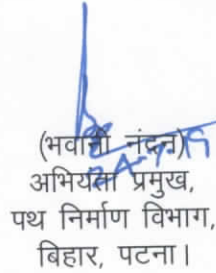 (भवानी नंदन)
24-7-19
अभियंता प्रमुख,
पथ निर्माण विभाग,
बिहार, पटना।